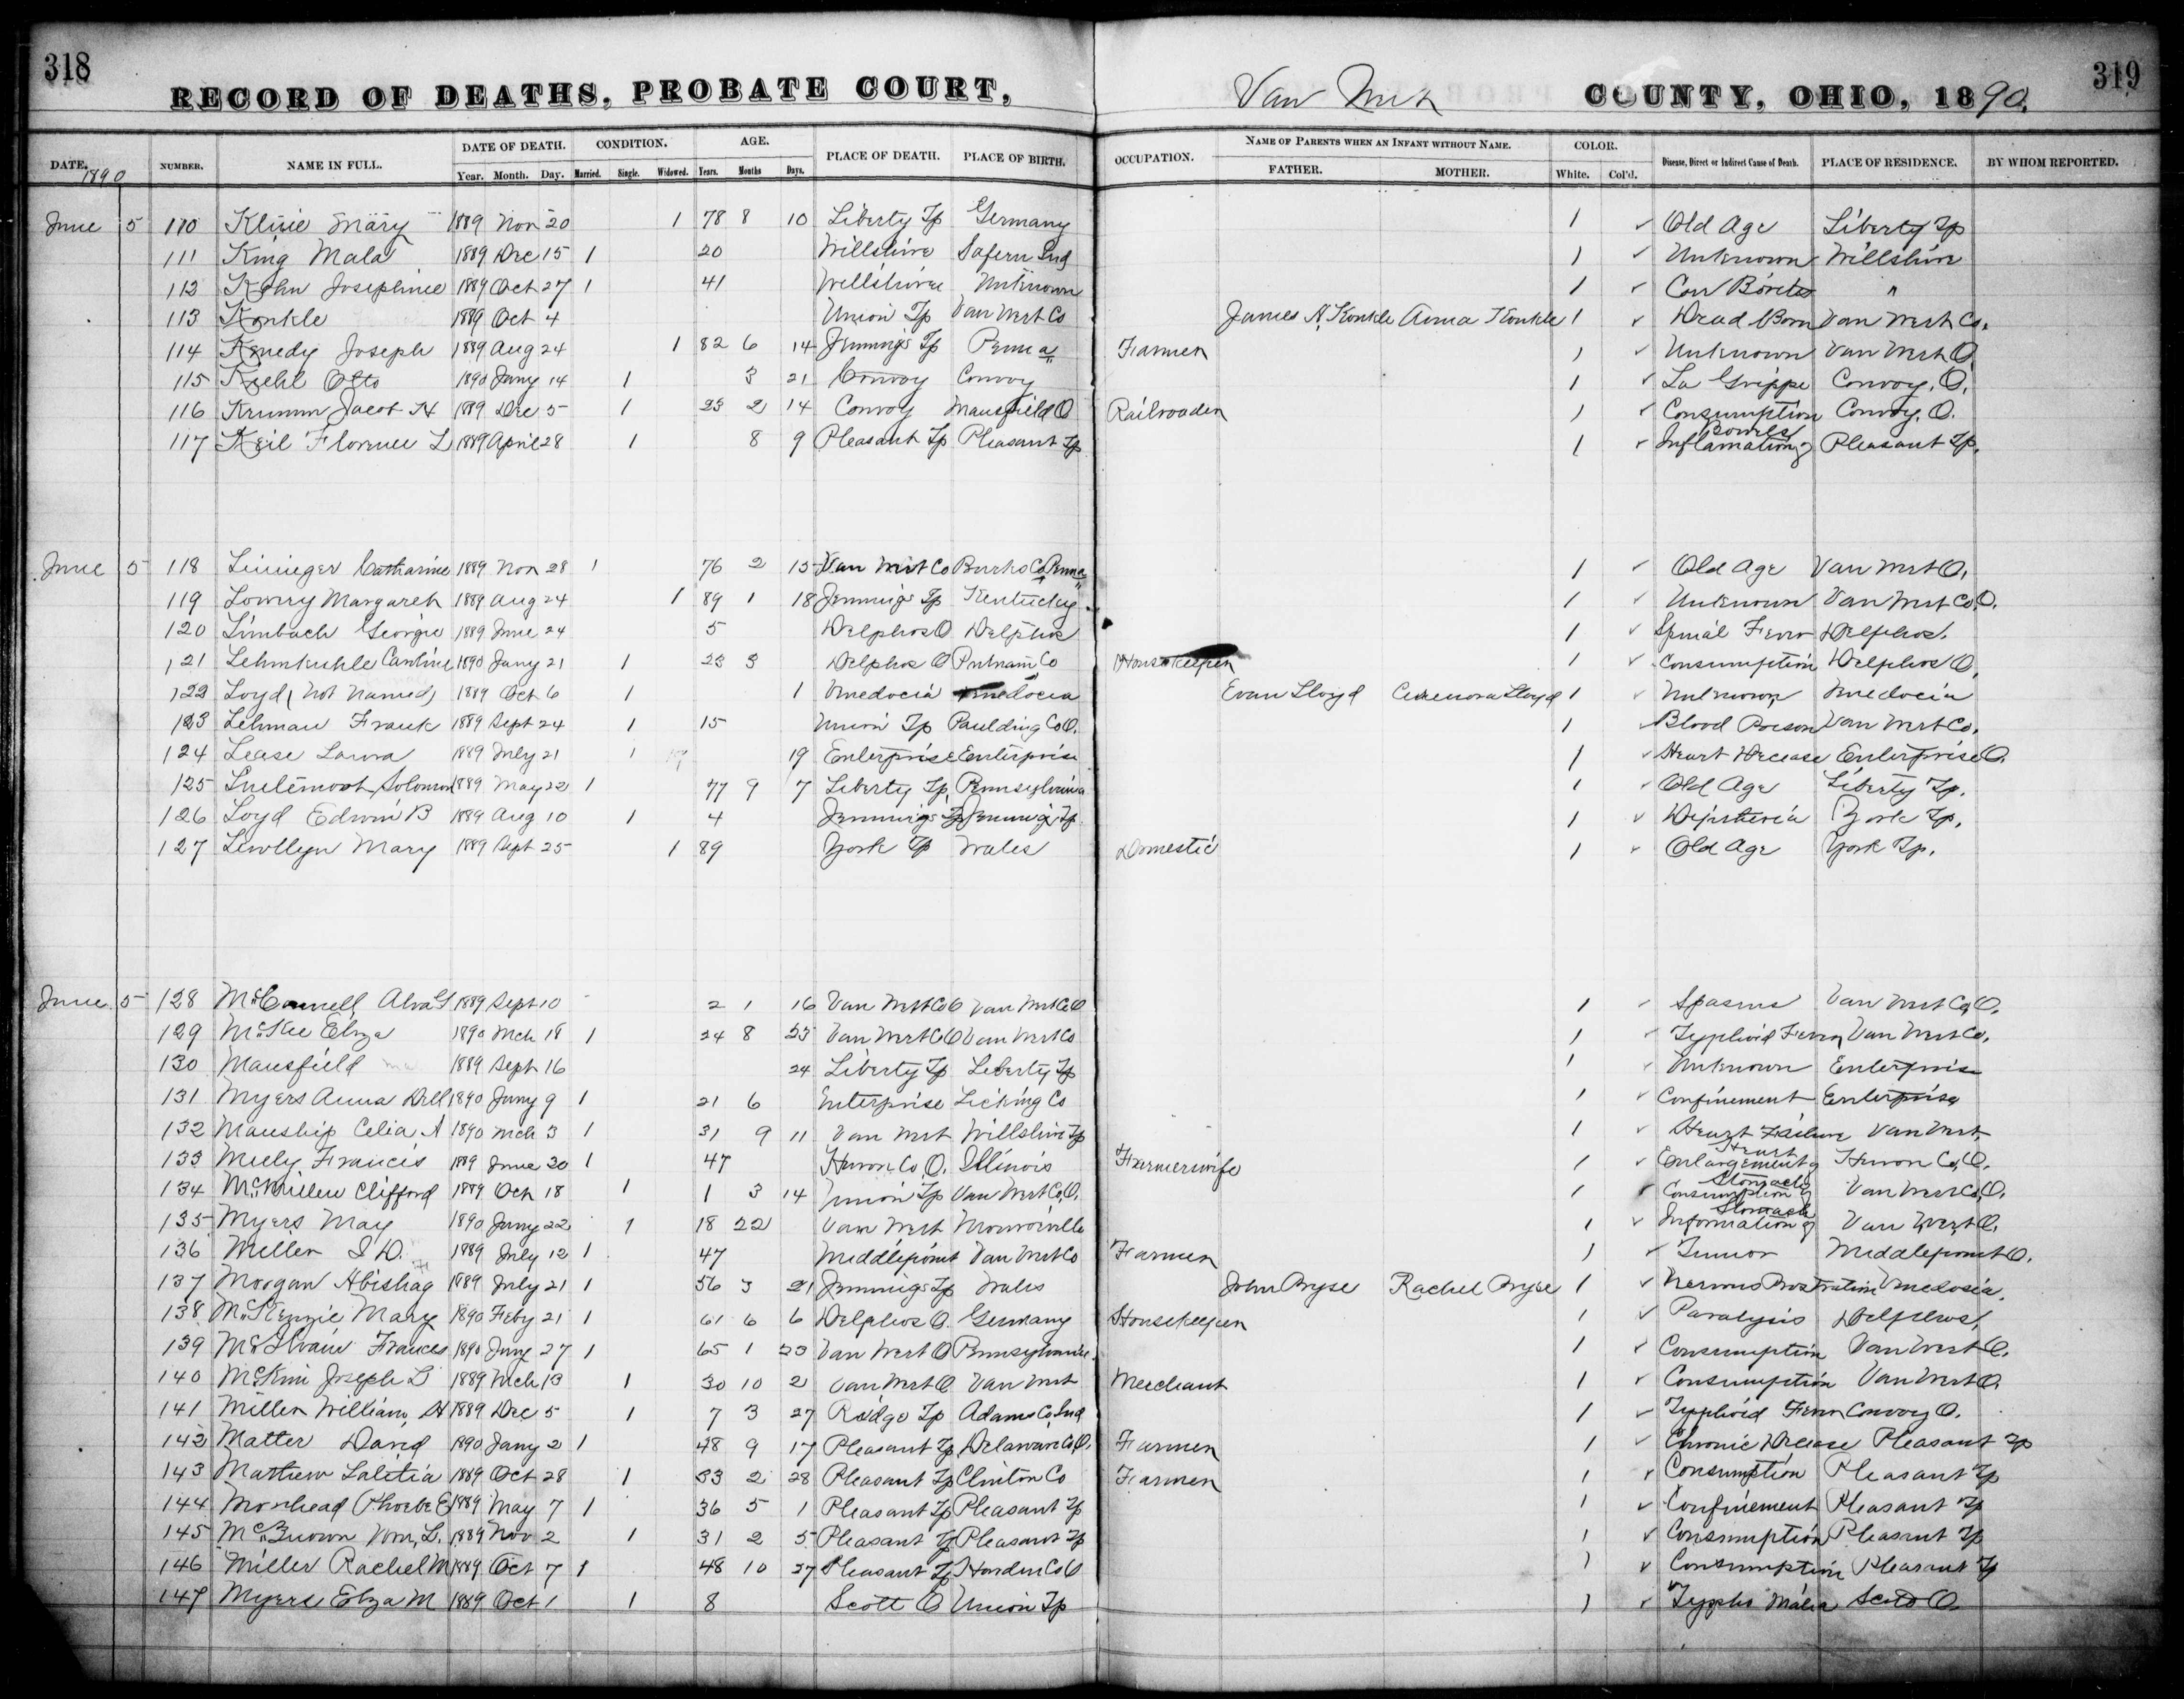 318
RECORD OF DEATHS, PROBATE COURT, Van Wert COUNTY, OHIO, 1890.
319
DATE. 1890 NUMBER. NAME IN FULL. DATE OF DEATH. Year. Month. Day. CONDITION. Married. Single. Widowed. AGE. Years. Months Days. PLACE OF DEATH. PLACE OF BIRTH. OCCUPATION. NAME OF PARENTS WHEN AN INFANT WITHOUT NAME. FATHER. MOTHER. COLOR. White. Col'd. Disease, Direct or Indirect Cause of Death. PLACE OF RESIDENCE. BY WHOM REPORTED.
June 5 110 Kline Mary 1889 Nov 20 1 78 8 10 Liberty Tp Germany 1 ✓ Old Age Liberty Tp
111 King Mala 1889 Dec 15 1 20 Willshire Ind 1 ✓ Unknown Willshire
112 Kohn Josephine 1889 Oct 27 1 41 Willshire Unknown 1 ✓ "
113 Konkle 1889 Oct 4 Union Tp Van Wert Co James A. Konkle Anna Konkle 1 ✓ Dead Born Van Wert Co.
114 Kenedy Joseph 1889 Aug 24 1 82 6 14 Jennings Tp Penna Farmer 1 ✓ Unknown Van Wert O
115 Kiehl Otto 1890 Jany 14 1 3 21 Convoy Convoy 1 ✓ La Grippe Convoy, O.
116 Krumm Jacob H 1889 Dec 5 1 23 2 14 Convoy Mansfield O Railroader 1 ✓ Consumption Convoy, O.
117 Keil Florence L 1889 April 28 1 8 9 Pleasant Tp Pleasant Tp 1 ✓ Inflamation of Bowels Pleasant Tp.
June 5 118 Lininger Catharine 1889 Nov 28 1 76 2 15 Van Wert Co Burks Co Penna 1 ✓ Old Age Van Wert O.
119 Lowry Margaret 1889 Aug 24 1 89 1 18 Jennings Tp Kentucky 1 ✓ Unknown Van Wert Co, O.
120 Limbach Georgie 1889 June 24 5 Delphos O Delphos 1 ✓ Spinal Fever Delphos.
121 Lehmkuhle Caroline 1890 Jany 21 1 23 3 Delphos O Putnam Co Housekeeper 1 ✓ Consumption Delphos O.
122 Loyd (Not Named) 1889 Oct 6 1 1 Venedocia Venedocia Evan Lloyd Lloyd 1 ✓ Unknown Venedocia
123 Lehman Frank 1889 Sept 24 1 15 Union Tp Paulding Co O. 1 ✓ Blood Poison Van Wert Co.
124 Lease Laura 1889 July 21 1 19 Enterprise Enterprise 1 ✓ Heart Decease Enterprise O.
125 Solomon 1889 May 22 1 77 9 7 Liberty Tp. Pennsylvania 1 ✓ Old Age Liberty Tp.
126 Loyd Edwin B 1889 Aug 10 1 4 Jennings Tp Jennings Tp 1 ✓ Diptheria York Tp.
127 Lewllyn Mary 1889 Sept 25 1 89 York Tp Wales Domestic 1 ✓ Old Age York Tp.
June 5 128 McConnell, Alva 1889 Sept 10 2 1 16 Van Wert Co O Van Wert Co O 1 ✓ Spasms Van Wert Co, O.
129 McKee Eliza 1890 Mch 18 1 24 8 25 Van Wert Co O Van Wert Co 1 ✓ Typhoid Fever Van Wert Co.
130 Mansfield 1889 Sept 16 24 Liberty Tp Liberty Tp 1 ✓ Unknown Enterprise
131 Myers Anna Dell 1890 Jany 9 1 21 6 Enterprise Licking Co 1 ✓ Confinement Enterprise
132 Manship Celia A 1890 Mch 3 1 31 9 11 Van Wert Willshire Tp 1 ✓ Heart Failure Van Wert
133 Meely Francis 1889 June 30 1 47 Huron Co, O. Illinois Farmerwife 1 ✓ Enlargement of Heart Huron Co, O.
134 McMillen Clifford 1889 Oct 18 1 1 3 14 Union Tp Van Wert Co, O. 1 ✓ Consumption of Stomach Van Wert Co, O.
135 Myers May 1890 Jany 22 1 18 22 Van Wert Monroeville 1 ✓ Information of Stomach Van Wert O.
136 Miller I D. 1889 July 12 1 47 Middlepoint Van Wert Co Farmer 1 ✓ Tumor Middlepoint O.
137 Morgan Abishag 1889 July 21 1 56 3 21 Jennings Tp Wales John Pryse Rachel Pryse 1 ✓ Nervous Prostration Venedosia.
138 McKenzie Mary 1890 Feby 21 1 61 6 6 Delphos O. Germany Housekeeper 1 ✓ Paralysis Delphos.
139 McIlvain Frances 1890 June 27 1 65 1 23 Van Wert O Pennsylvania. 1 ✓ Consumption Van Wert O.
140 McKim Joseph L 1889 Mch 13 1 30 10 2 Van Wert O Van Wert Merchant 1 ✓ Consumption Van Wert O.
141 Miller William H 1889 Dec 5 1 7 3 27 Ridge Tp Adams Co, Ind 1 ✓ Typhoid Fever Convoy O.
142 Matter David 1890 Jany 2 1 48 9 17 Pleasant Tp Delaware Co O. Farmer 1 ✓ Chronic Decease Pleasant Tp
143 Mathew Lalitia 1889 Oct 28 1 33 2 28 Pleasant Tp Clinton Co Farmer 1 ✓ Consumption Pleasant Tp
144 Morehead Phoebe E 1889 May 7 1 36 5 1 Pleasant Tp Pleasant Tp 1 ✓ Confinement Pleasant Tp
145 Wm, L. 1889 Nov 2 1 31 2 5 Pleasant Tp Pleasant Tp 1 ✓ Consumption Pleasant Tp
146 Miller Rachel M 1889 Oct 7 1 48 10 27 Pleasant Tp Harden Co O 1 ✓ Consumption Pleasant Tp
147 Myers Eliza M 1889 Oct 1 1 8 Scott O Union Tp 1 ✓ Typho Malia Scott O.